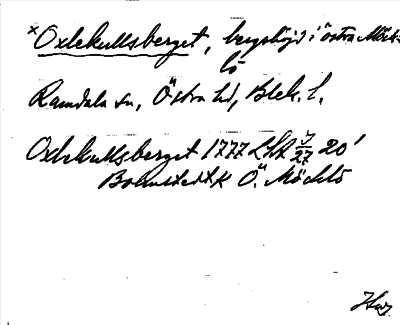 ×Oxlekullsberget, bergshöjd i Östra Möck-
lö
Ramdala sn, Östra hd, Blek. l.
Oxlekullsberget 1777 LSA J/27 20'
Bohnstedt K Ö. Möcklö